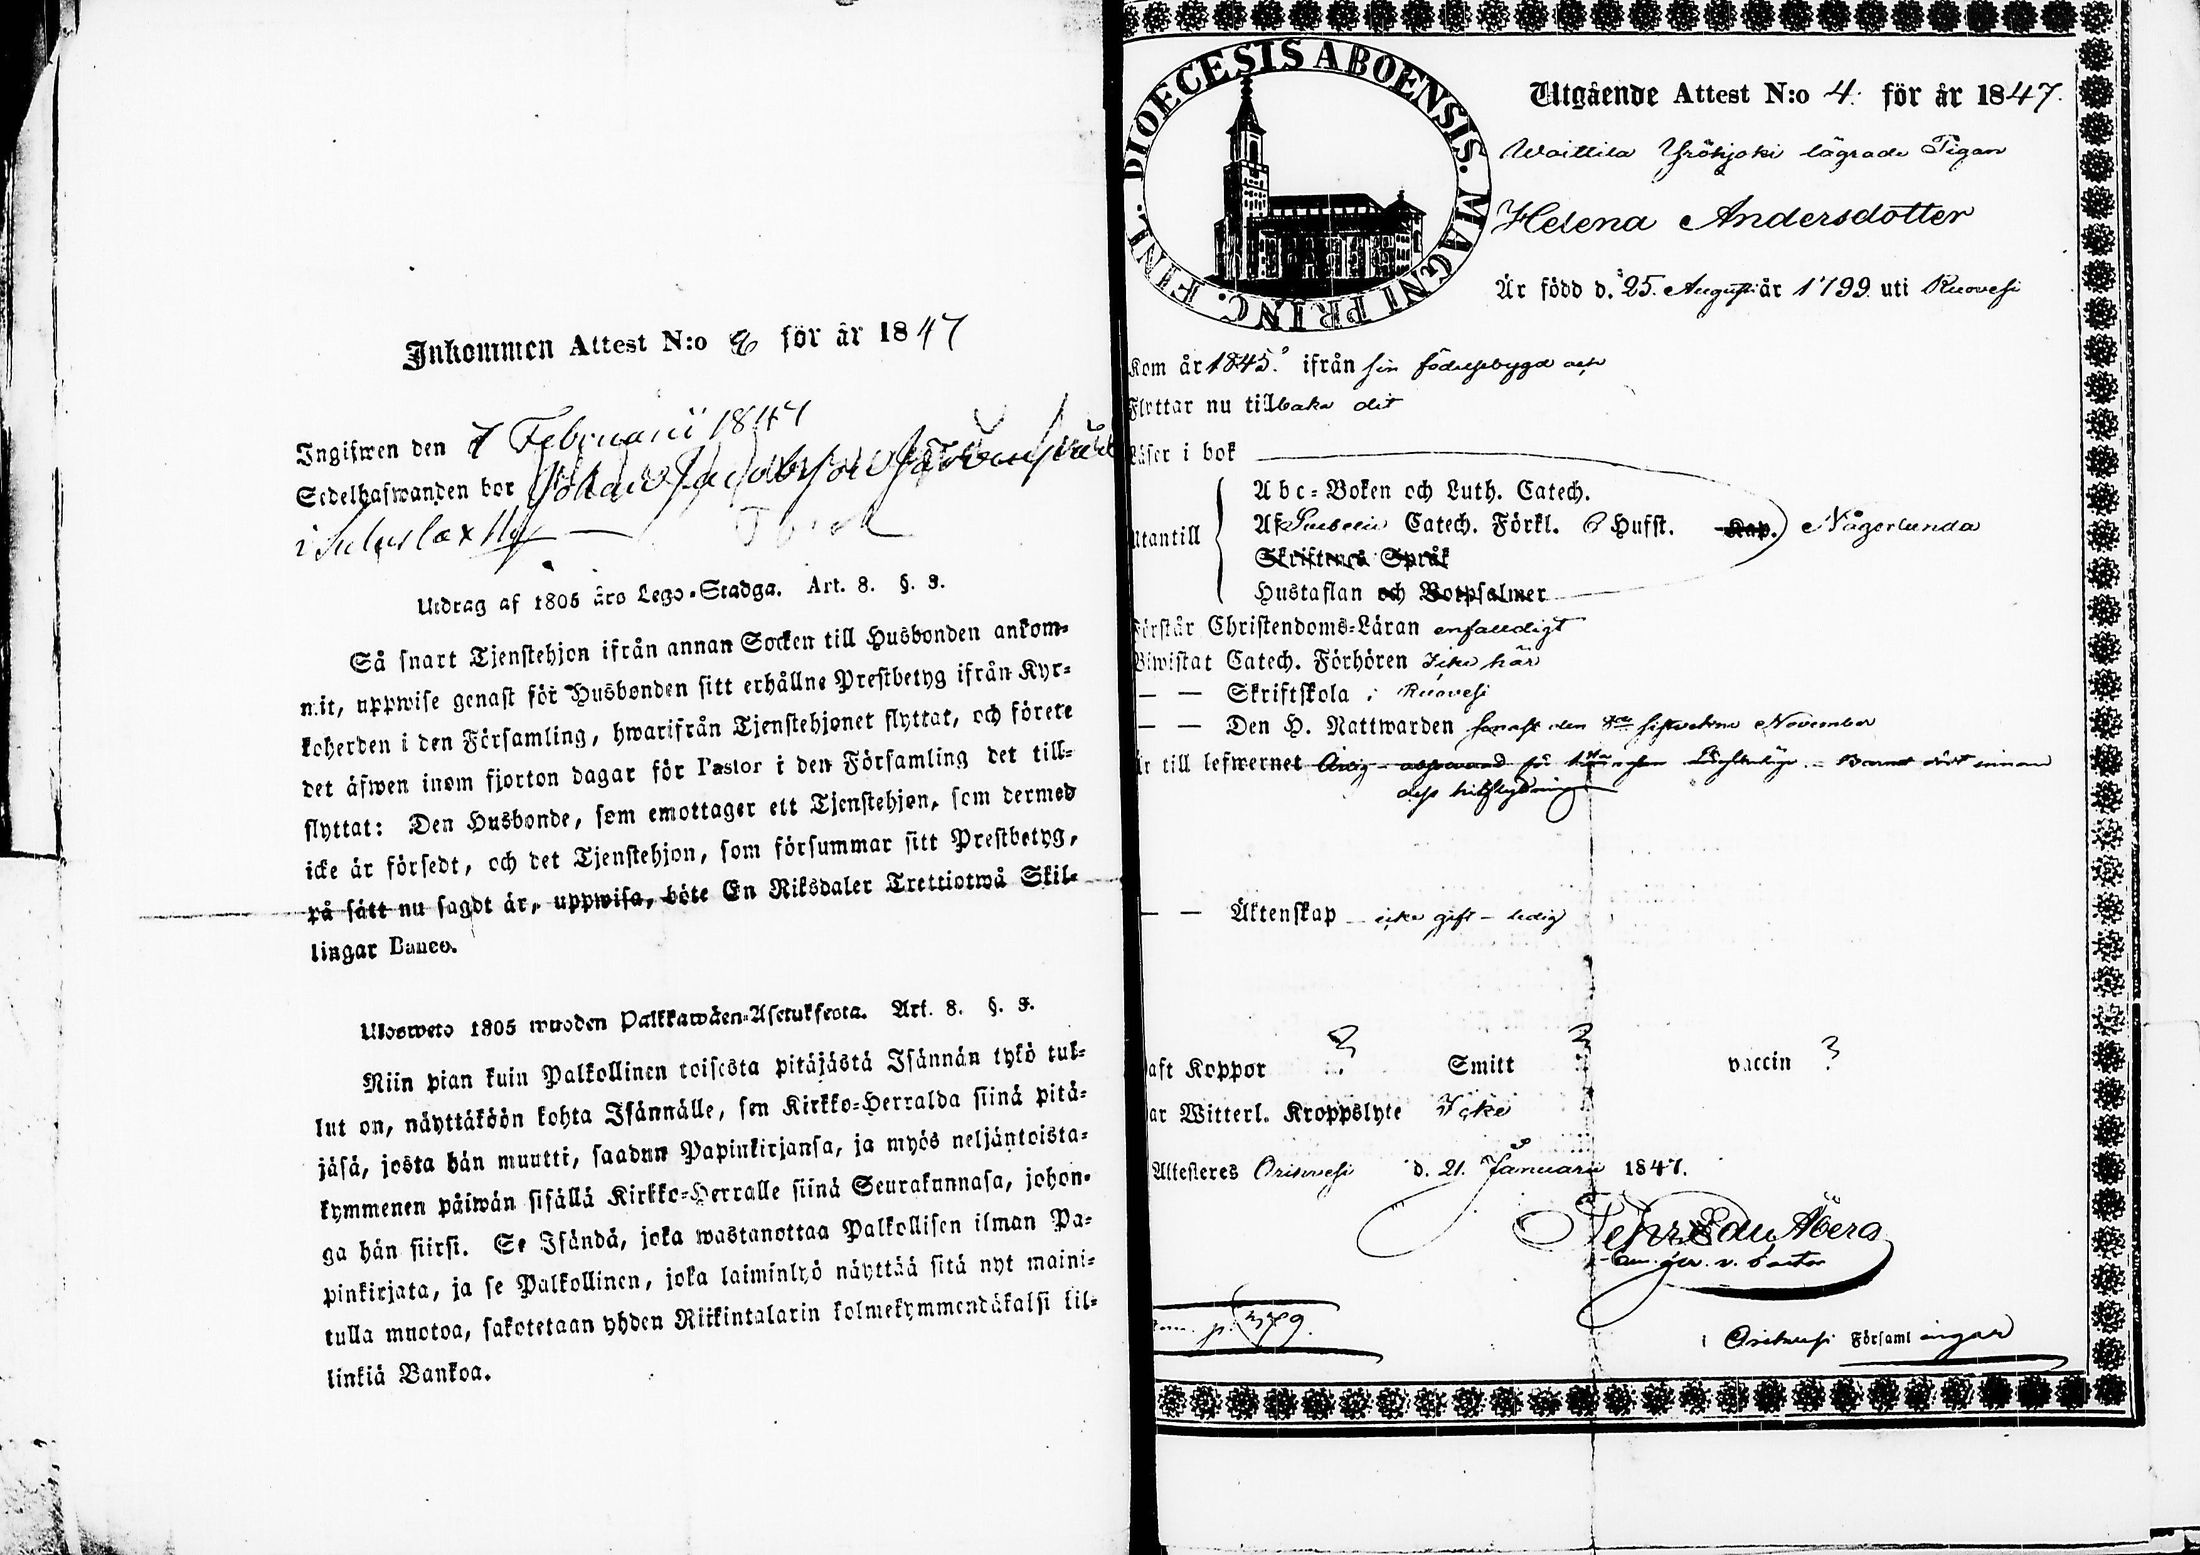 Inkommen Attest N:o för år 1847
Ingifwen den 7 Februarii 1847
Sedelhafwanden bor
i
Utdrag af 1805 års Lego-Stadga. Art. 8. §. 3.
Så snart Tjenstehjon ifrån annan Socken till Husbonden ankom-
mit, uppwise genast för Husbonden sitt erhållne Prestbetyg ifrån Kyr-
koherden i den Församling, hwarifrån Tjenstehjonet flyttat, och förete
det äfwen inom fjorton dagar för Pastor i den Församling det till-
flyttat: Den Husbonde, som emottager ett Tjenstehjon, som dermed
icke är försedt, och det Tjenstehjon, som försummar sitt Prestbetyg,
på sätt nu sagdt är, uppwisa, böte En Riksdaler Trettiotwå Skil-
lingar Banco.
Ulosweto 1805 wuoden Palkkawäen-Asetuksesta. Art. 8. §. 3.
Niin pian kuin Palkollinen toisesta pitäjästä Isännän tykö tul-
lut on, näyttäköön kohta Isännälle, sen Kirkko-Herralda siinä pitä-
jäsä, josta hän muutti, saadun Papinkirjansa, ja myös neljäntoista-
kymmenen päiwän sisällä Kirkko-Herralle siinä Seurakunnasa, johon-
ga hän siirsi. Se Isändä, joka wastanottaa Palkollisen ilman Pa-
pinkirjata, ja se Palkollinen, joka laiminlyö näyttää sitä nyt maini-
tulla muotoa, sakotetaan yhden Riikintalarin kolmekymmendäkaksi kil-
linkiä Bankoa.
DIOECESIS ABOENSIS. MAGNI PRINC. FINL.
Utgående Attest N:o 4. för år 1847.
Waittila Yröhjoki lägrade Pigan
Helena Andersdotter
Är född d. 25. Augusti år 1799 uti Ruovesi
Kom år 1845. ifrån sin födelsebygd och
Flyttar nu tillbaka dit
Läser i bok
Abc-Boken och Luth. Catech.
Utantill Af Catech. Förkl. 6 Hufst. Kap. Någorlunda
Skriftenes Språk
Hustaflan och Botpsalmer
Förstår Christendoms-Läran enfaldigt
Biwistat Catech. Förhören Icke här
— — Skriftskola i Ruovesi
— — Den H. Nattwarden senast den November
Är till lefwernet Barnet dödt innan
dess
— — Äktenskap icke gift – ledig
Haft Koppor ? Smitt ? vaccin ?
Har Witterl. Kroppslyte Icke
Attesteres Orivesi d. 21. Januari 1847.
Pehr Edu Åberg
i Orivesi Församlingar
p. 379.